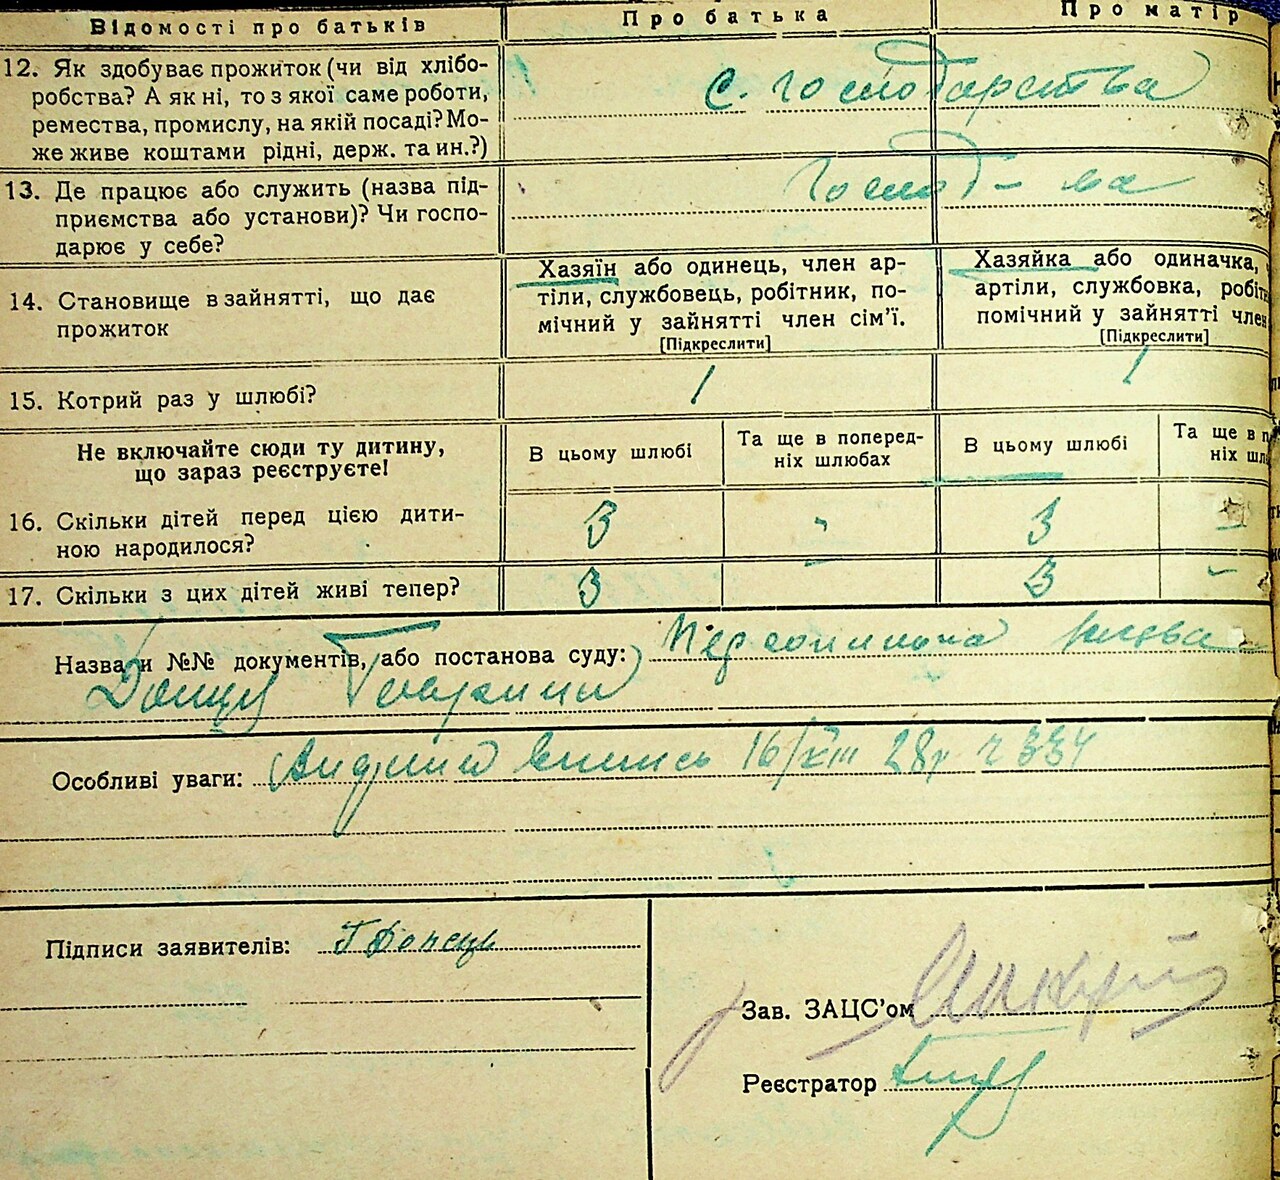 Відомості про батьків
Про батька
Про матір
12. Як здобуває прожиток (чи від хлібо-
робства? А як ні, то з якої саме роботи,
ремества, промислу, на якій посаді? Мо-
же живе коштами рідні, держ. та ин.?)
с. господарства
13. Де працює або служить (назва під-
приємства або установи)? Чи госпо-
дарює у себе?
господ-ва
14. Становище в зайнятті, що дає
прожиток
Хазяїн або одинець, член ар-
тіли, службовець, робітник, по-
мічний у зайнятті член сім'ї.
[Підкреслити]
Хазяйка або одиначка,
артіли, службовка, робіт
помічний у зайнятті член
[Підкреслити]
15. Котрий раз у шлюбі?
1
1
Не включайте сюди ту дитину,
що зараз реєструєте!
В цьому шлюбі
Та ще в поперед-
ніх шлюбах
В цьому шлюбі
Та ще в п
ніх шл
16. Скільки дітей перед цією дити-
ною народилося?
3
-
3
-
17. Скільки з цих дітей живі тепер?
3
3
-
Назва и №№ документів, або постанова суду:
Донець
Особливі уваги: 16/XIII 28р ч 334
Підписи заявителів: Г Донець
Зав. ЗАЦС'ом
Реєстратор